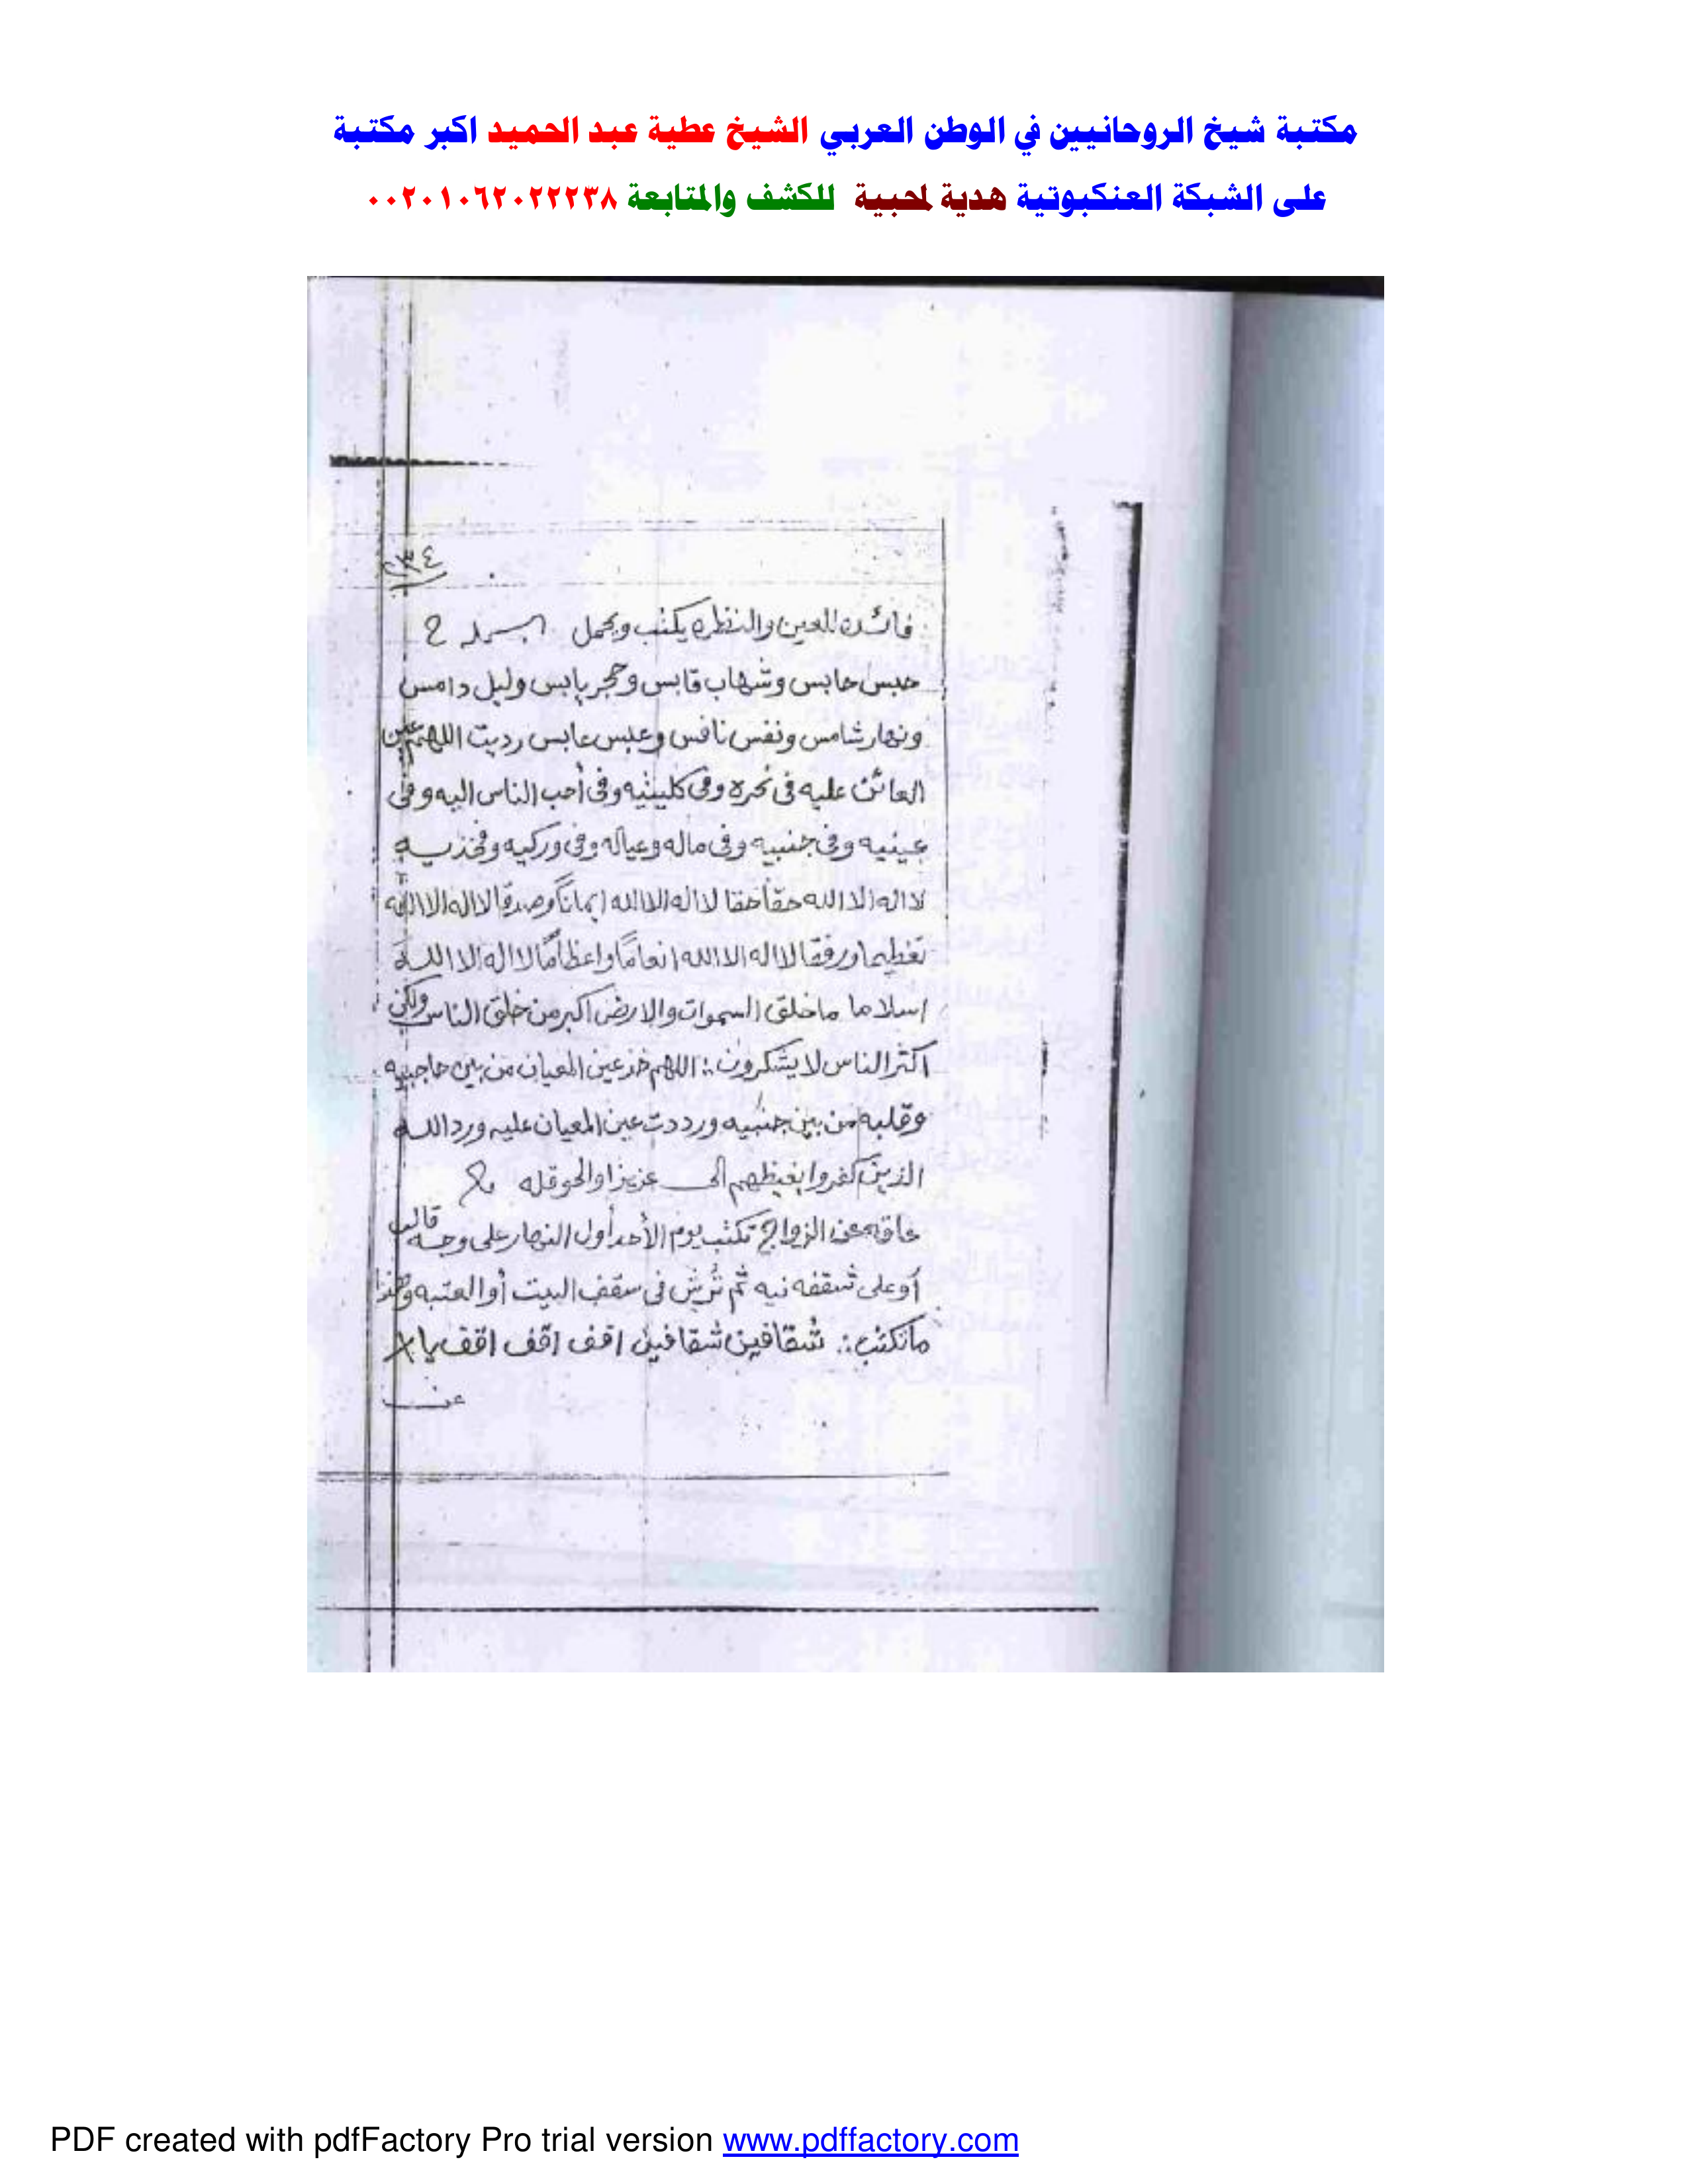 مكتبة شيخ الروحانيين في الوطن العربي الشيخ عطية عبد الحميد اكبر مكتبة
على الشبكة العنكبوتية هدية لمحبية للكشف والمتابعة ٠٠٢٠١٠٦٢٠٢٢٢٣٨
فائده للعين والنظره يكتب ويحمل
حبس حابس وشهاب قابس وحجر يابس وليل دامس
ونهار شامس ونفس نافس وعبس عابس رديت اللهم عين
العائن عليه فى نحره وفى كليتيه وفى أحب الناس اليه وفى
عينيه وفى جنبيه وفى ماله وعياله وفى وركيه وفخذيه
لا اله الا الله حقا حقا لا اله الا الله ايمانًا وصدقا لا اله الا الله
تعظيما ورفقا لا اله الا الله انعامًا واعظامًا لا اله الا الله
اسلاما ماخلق السموات والارض اكبر من خلق الناس ولكن
اكثر الناس لا يشكرون :: اللهم خذ عين المعيان من بين حاجبيه
وقلبه من بين جنبيه ورددت عين المعيان عليه ورد الله
الذين كفروا بغيظهم الى عزيزا والحوقله
عاقه عن الزواج تكتب يوم الأحد أول النهار على وجه قالب
أو على شقفه نيه ثم تُرش فى سقف البيت أو العتبه وهذا
ماتكتب :: شقافين شقافين اقف اقف اقف يا
عن
PDF created with pdfFactory Pro trial version www.pdffactory.com